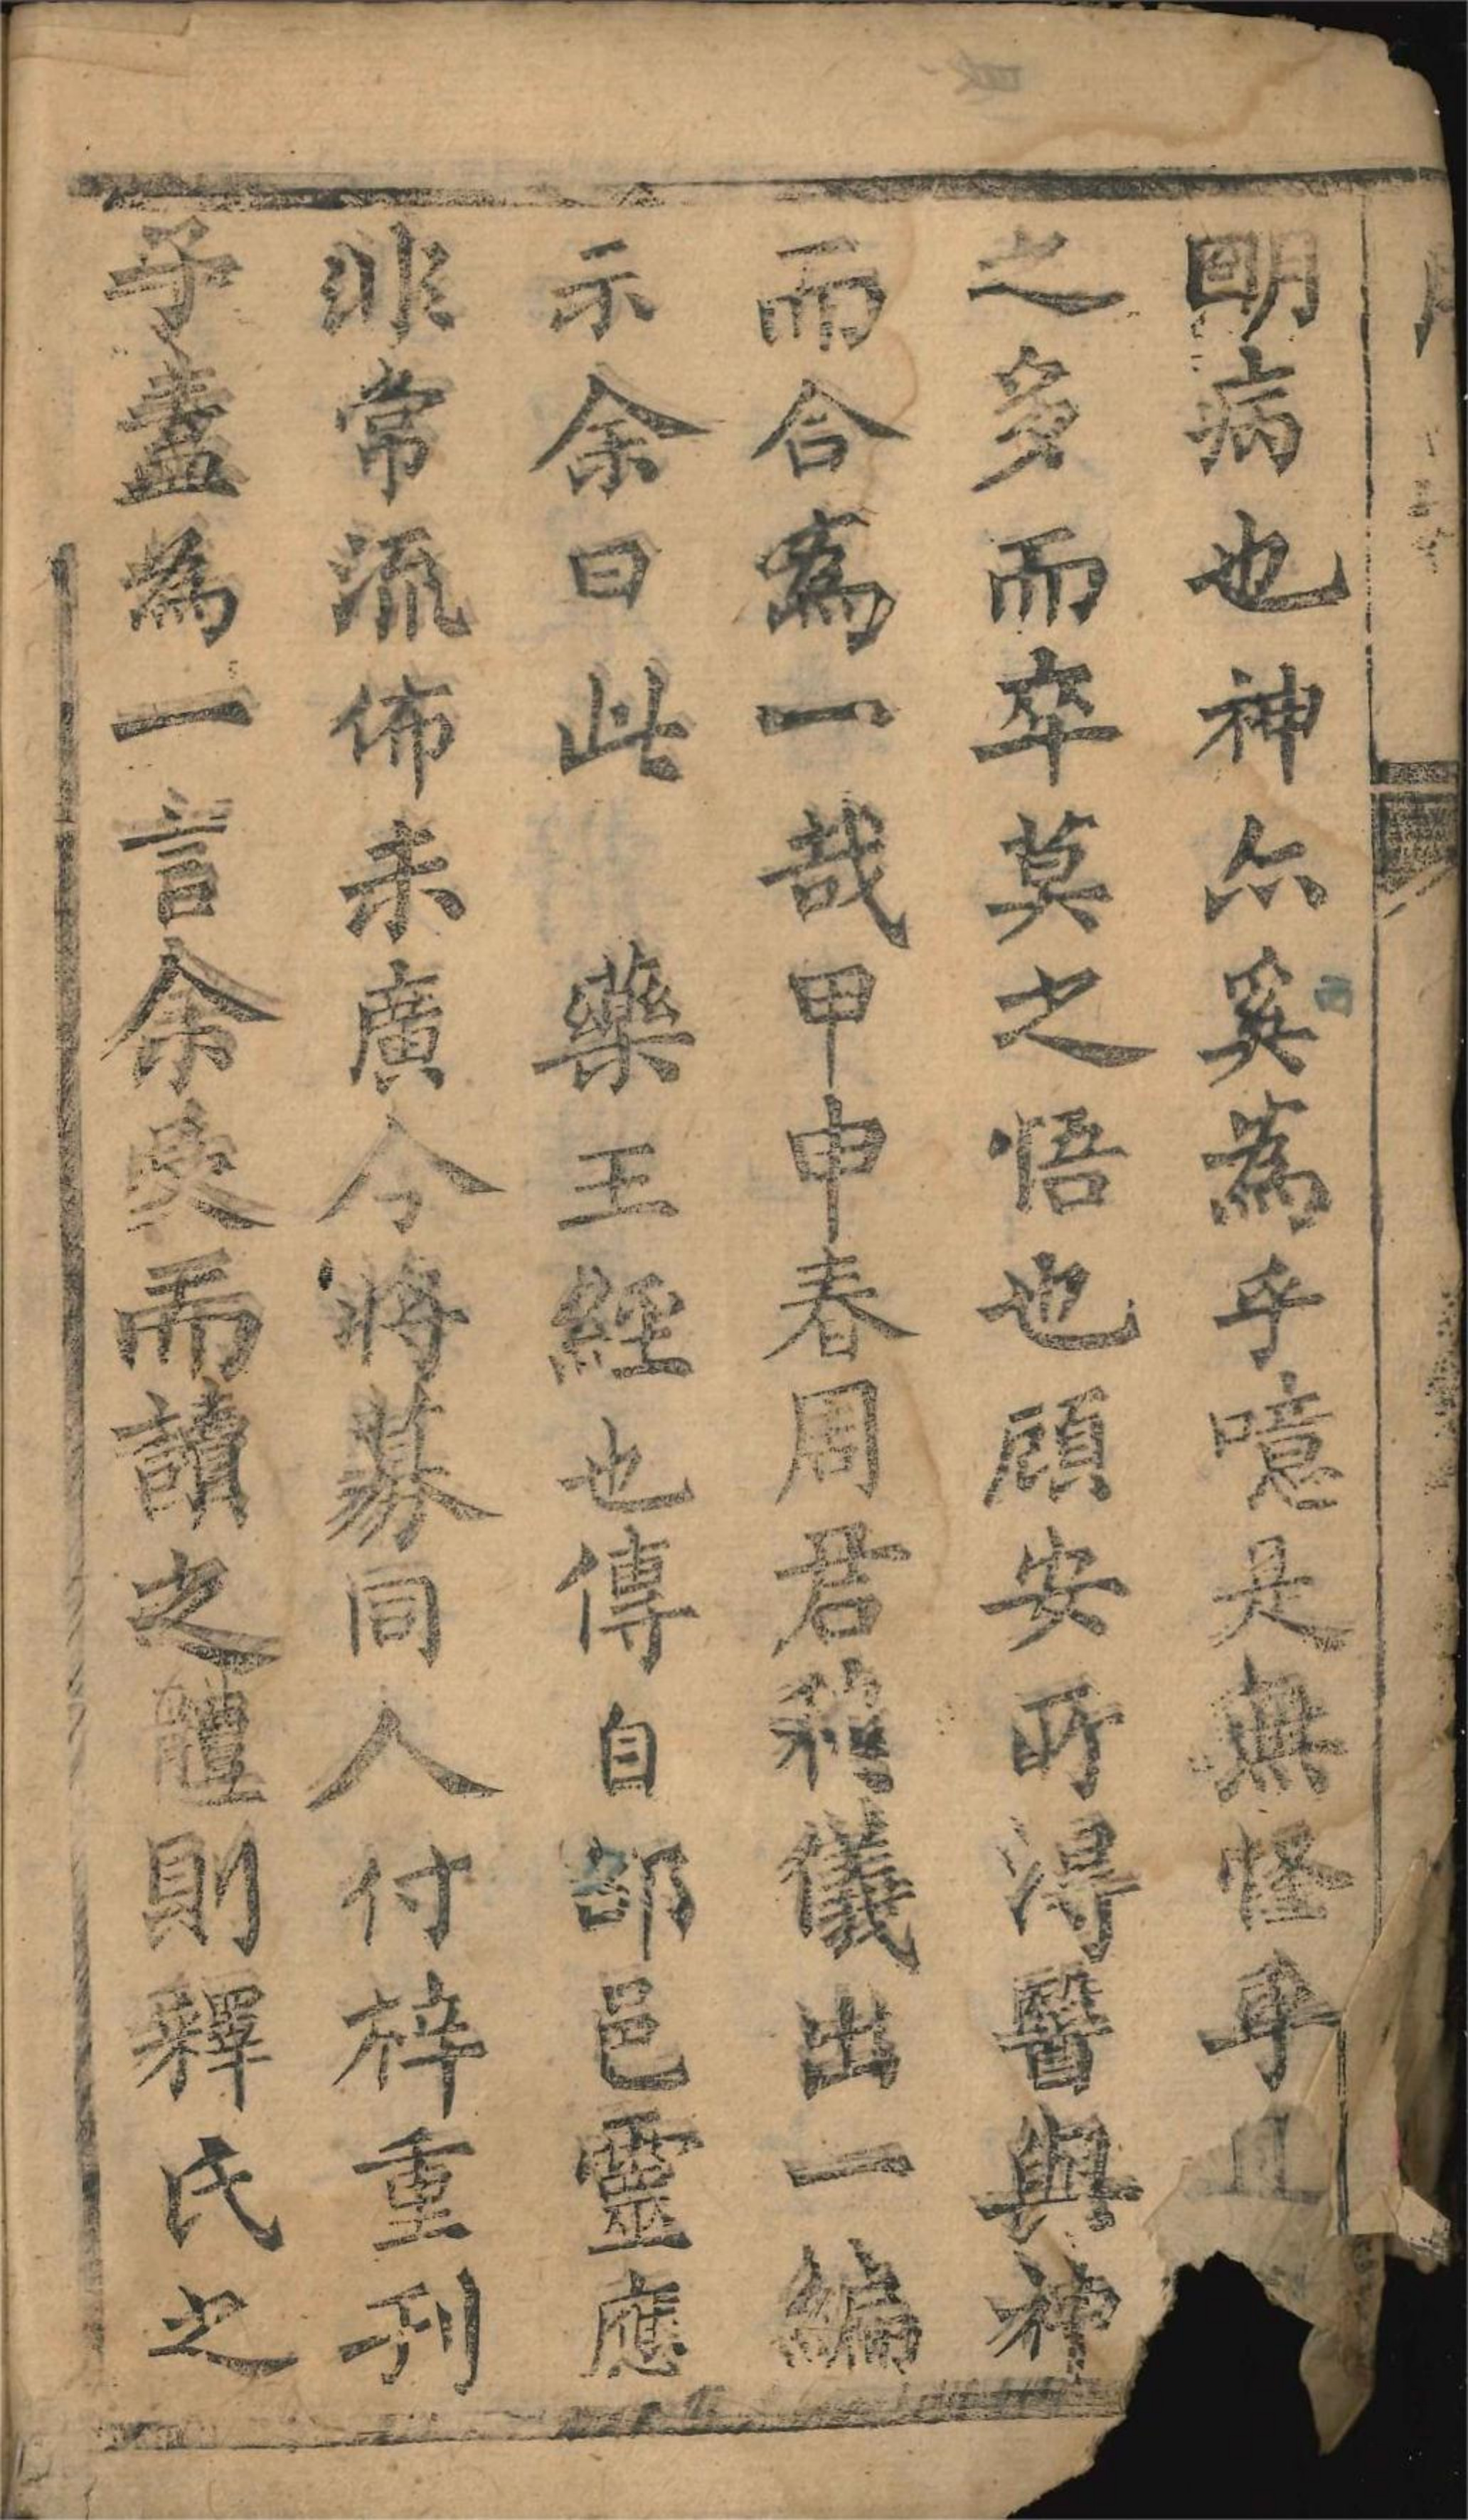 明病也神尒奚為乎噫是無怪乎且
之多而卒莫之悟也顧安所得醫與神
而合為一哉甲申春周君穉儀出一編
示余曰此 藥王經也傳自郃邑靈應
非常流佈未廣今將募同人付梓重刊
子盍為一言余受而讀之體則釋氏之